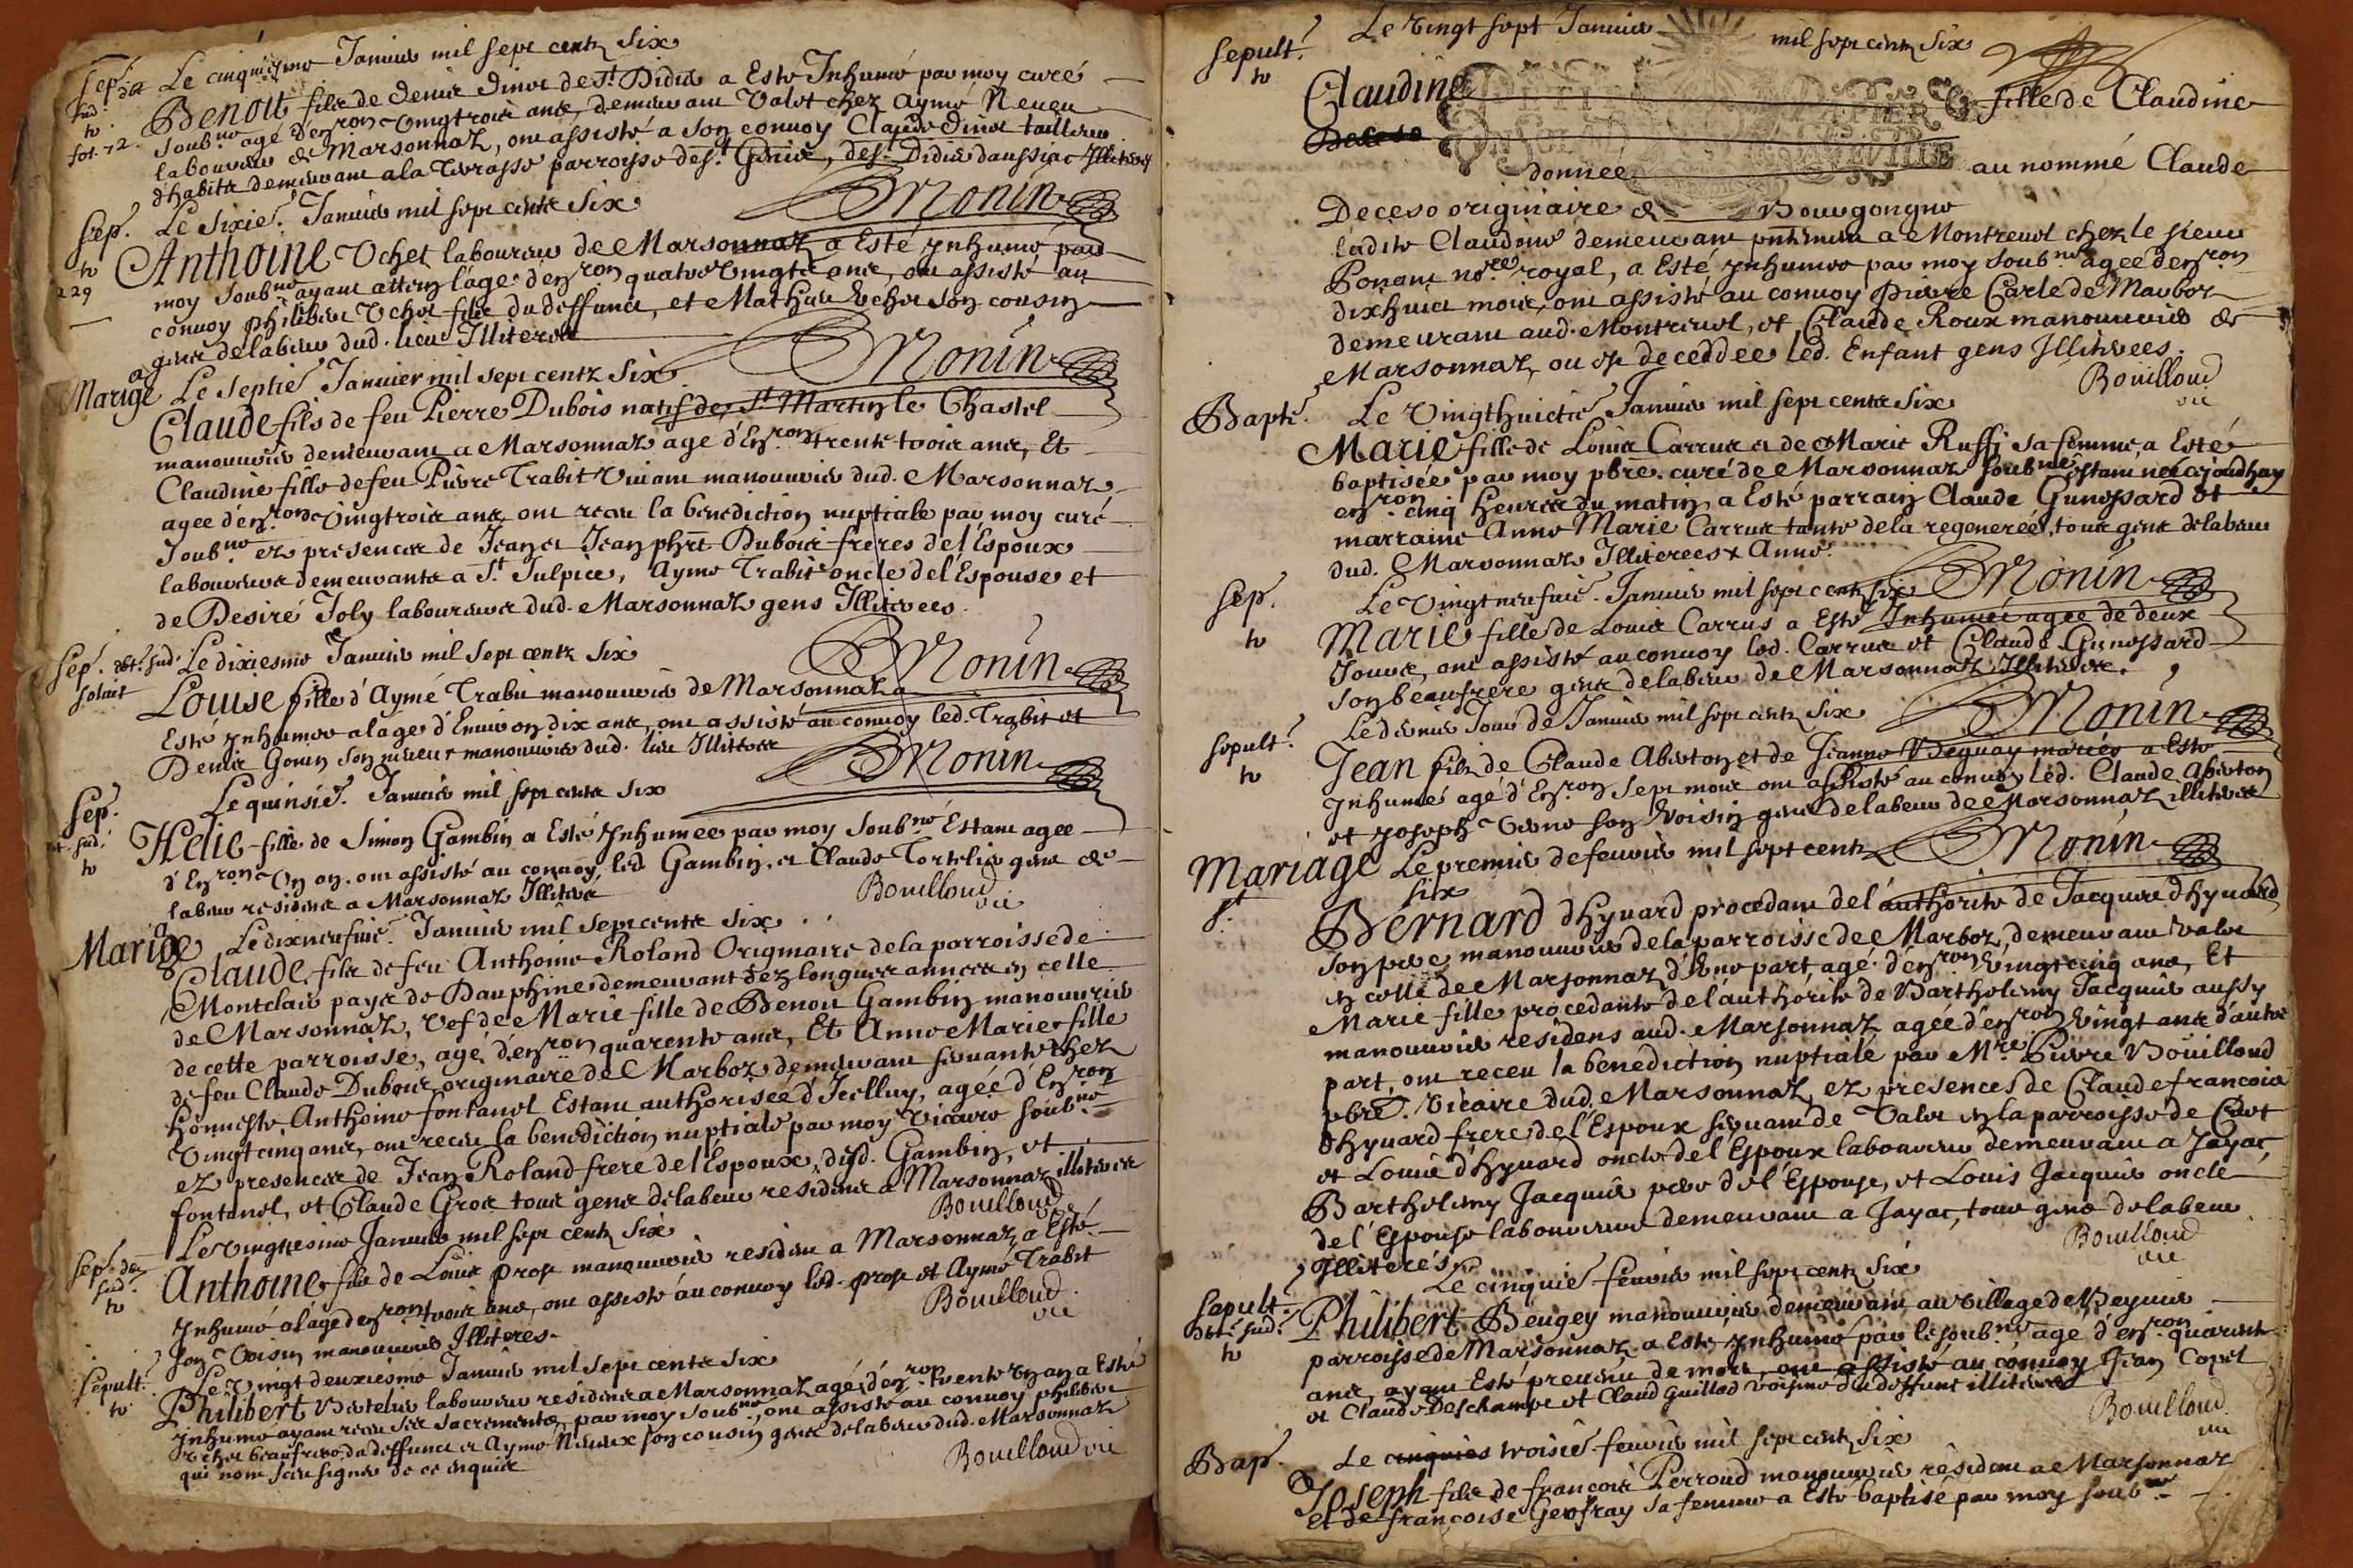 Sep.
Le cinquiesme Januier mil sept centz Six
Benoit fils de Denis Diuoe de St. Didier a Esté Inhumé par moy curé
Soubné agé d'enron Vingtrois ans, demeurant Valet chez Aymé Neueu
laboureur de Marsonnaz, ont assisté a son conuoy Claude tailleur
d'habits demeurant a la Terrasse parroisse de St. Genis, de St. Didier daussiac Illiterés
Monin
Sep.
to
229
Le Sixie. Januier mil sept cents Six
Anthoine Vchet laboureur de Marsonnaz a Esté ynhumé par
moy Soubné ayant atteins l'age d'enron quatre Vingts ans, ont assisté au
conuoy philibert Vchet fils du deffunct, et Mathieu Vchet son cousin
gens de labeur dud. lieu Illiterés
Monin
Mariage
Le Septie. Januier mil sept centz Six
Claude fils de feu Pierre Dubois natif de St. Martin le Chastel
manouurier demeurant a Marsonnaz agé d'Enron trente trois ans, Et
Claudine fille de feu Pierre Trabit Viuant manouurier dud. Marsonnaz
agee d'enron Vingtrois ans ont receu la benediction nuptiale par moy curé
Soubné ez presences de Jean et Jean phrt Dubois freres de l'Espoux
laboureurs demeurants a St. Sulpice, Aymé Trabit oncle de l'Espouse et
de Desiré Joly laboureurs dud. Marsonnaz gens Illiterees.
Monin
Sep.
Le dixiesme Januier mil sept centz Six
Louise fille d'Aymé Trabit manouurier de Marsonnaz a
Esté ynhumee a l'age d'Enuiron dix ans, ont assisté au conuoy led. Trabit et
Denis Gouin son nieueu manouurier dud. lieu Illiterés
Monin
Sep.
to
Le quinsie. Januier mil sept cents Six
Helie fille de Simon Gambin a Esté ynhumee par moy Soubné Estant agee
d'Enron Vn an. ont assisté au conuoy led Gambin, et Claude Tortelier gens de
labeur residents a Marsonnaz Illiterés
Bouilloud
vic
Mariage
Le dixneufuie. Januier mil sept cents Six
Claude fils de feu Anthoine Roland Originaire de la parroisse de
Montclair pays de Dauphiné demeurant dez longues annees en celle
de Marsonnaz, Vef de Marie fille de Benoit Gambin manouurier
de cette parroisse, agé d'enron quarente ans, Et Anne Marie fille
de feu Claude Dubois originaire de Marboz demeurant seruante chez
honneste Anthoine fontanel Estant authorisée d'Icelluy, agée d'Enron
Vingtcinq ans, ont receu la benediction nuptiale par moy Vicaire soubné
ez presences de Jean Roland frere de l'Espoux, dusd. Gambin, et
fontanel, et Claude Gros tous gens de labeur residents a Marsonnaz illiterés
Bouilloud
vic
Sep.
to
Le Vingtiesme Januier mil sept centz Six
Anthoine fils de Louis prost manouurier resident a Marsonnaz, a Esté
Inhumé a l'age d'enron trois ans, ont assisté au conuoy led. prost et Aymé Trabit
son Voisin manouuriers Illiterés.
Bouilloud
vic
Sepult.
to
Le Vingt deuxiesme Januier mil sept cents Six
Philibert Vertelier laboureur resident a Marsonnaz agé d'enron trente Vn an a Esté
ynhumé ayant receu ses sacrements, par moy soubné, ont assisté au conuoy philibert
Vchet beaufrere du deffunct et Aymé Nieueux son cousin gens de labeur dud. Marsonnaz
qui nont sceu signer de ce enquis
Bouilloud vic
Sepult.
to
Le Vingt sept Januier mil sept centz Six
Claudine fille de Claudine
donnée au nommé Claude
Deceso originaire de Bourgongne
ladite Claudine demeurant a Montreuel chez le sieur
Ponant nore royal, a Esté ynhumee par moy soubné agee d'enron
dixhuict mois, ont assisté au conuoy pierre Carle de Marboz
demeurant aud. Montreuel, et Claude Roux manouurier de
Marsonnaz, ou est decedee led. Enfant gens Illiterees.
Bouilloud
vic
Bapte.
Le Vingthuictie. Januier mil sept cents Six
Marie fille de Louis Carrus et de Marie Ruffi sa femme, a Esté
baptisée par moy pbre. curé de Marsonnaz soubné Estant nee ajourdhuy
enron cinq heures du matin, a Esté parrain Claude Gunossard et
marraine Anne Marie Carrus tante de la regenerée, tous gens de labeur
dud. Marsonnaz Illiterees x Anne.
Monin
Sep.
to
Le Vingt neufuie. Januier mil sept centz Six
Marie fille de Louis Carrus a Esté Inhumée agee de deux
Jours, ont assisté au conuoy led. Carrus et Claude Gunossard
son beaufrere gens de labeur de Marsonnaz Illiterés.
Monin
Sepult.
to
Le dernier Jour de Januier mil sept centz Six
Jean fils de Claude Aberton et de Jeanne Beguay mariés a Esté
ynhumé agé d'Enron Sept mois ont assisté au conuoy led. Claude Aberton
et Joseph Verne son Voisin gens de labeur de Marsonnaz illiterés
Monin
Mariage
Le premier de feurier mil sept centz
six
Bernard d'hyuard procedant de l'authorité de Jacques d'hyuard
son pere manouurier de la parroisse de Marboz, demeurant Valet
en celle de Marsonnaz d'Vne part, agé d'enron Vingtcinq ans, Et
Marie fille procedante de l'authorité de Bartholemy Jacquier aussy
manouurier residens aud. Marsonnaz agée d'enron Vingt ans d'autre
part, ont receu la benediction nuptiale par Mre Pierre Bouilloud
pbre. Vicaire dud. Marsonnaz, ez presences de Claude francois
d'hyuard frere de l'Espoux seruant de Valet en la parroisse de Cret
et Louis d'hyuard oncle de l'Espoux laboureur demeurant a Jayac,
Bartholemy Jacquier pere de l'Espouse, et Louis Jacquier oncle
de l'Espouse laboureurs demeurant a Jayac, tous gens de labeur
Illiterés
Bouilloud
vic
Sepult.
to
Le cinquie. feurier mil sept centz Six
Philibert Beugey manouurier demeurant au village de Beyuier
parroisse de Marsonnaz a Esté ynhumé par le soubné agé d'enron quarente
ans, ayant Esté preuenu de mort, ont assisté au conuoy Jean Copel
et Claude Deschamps et Claud Guillod Voisins du deffunct illiterés
Bouilloud
vic
Bap.
Le cinquies troisie. feurier mil sept centz Six
Joseph fils de francois Perroud manouurier resident a Marsonnaz
et de françoise Geoffray sa femme a Esté baptisé par moy soubné